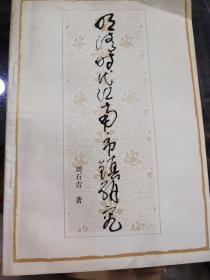 明清时代江南市镇研究
刘石吉 著